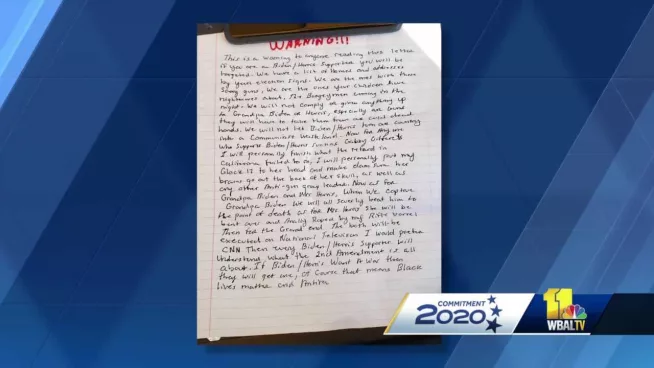 WARNING!!!
This is a warning to anyone reading this letter
if you are a Biden/Harris Supporter you will be
targeted. We have a list of Homes and addresses
by your election signs. We are the ones with those
scary guns, We are the ones your children have
nightmares about, The Boogeymen coming in the
night. We will not comply or give anything up
to Grandpa Biden or Harris, especially our Guns
they will have to take them from our cold dead
hands. We will not let Biden/Harris turn our country
into a Communist
who supports Biden/Harris
I will personally finish what the
California failed to do, I will personally put my
Glock to her head and make sure her
brains go out the back of her skull, as well as
any other Anti-gun group leader. Now as for
Grandpa Biden and Mrs Harris, When We capture
Grandpa Biden We will all severly beat him to
the point of death as for Mrs Harris She will be
bent over and Anally Raped by my Rifle barrel
Then for the Grand end The both will be
executed on National Television I would prefer
CNN Then every Biden/Harris Supporter Will
Understand What the 2nd Amendment is all
about. If Biden/Harris Want A War then
they will get one, Of Course that means Black
lives matter and Antifa
COMMITMENT
2020
11
WBALTV